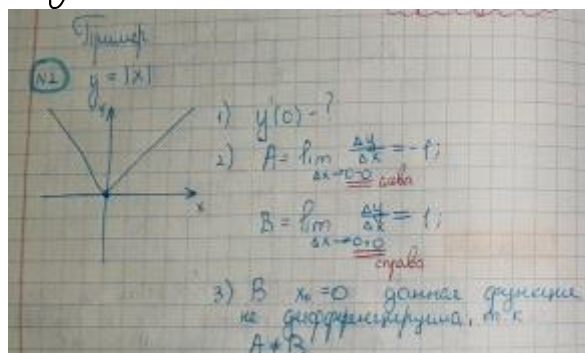 Пример
№1 y = |x|
y
x
1) y'(0) - ?
2) A = lim Δy/Δx = -1;
Δx→0-0
слева
B = lim Δy/Δx = 1;
Δx→0+0
справа
3) В x₀ = 0 данная функция
не дифференцируема, т к
A ≠ B